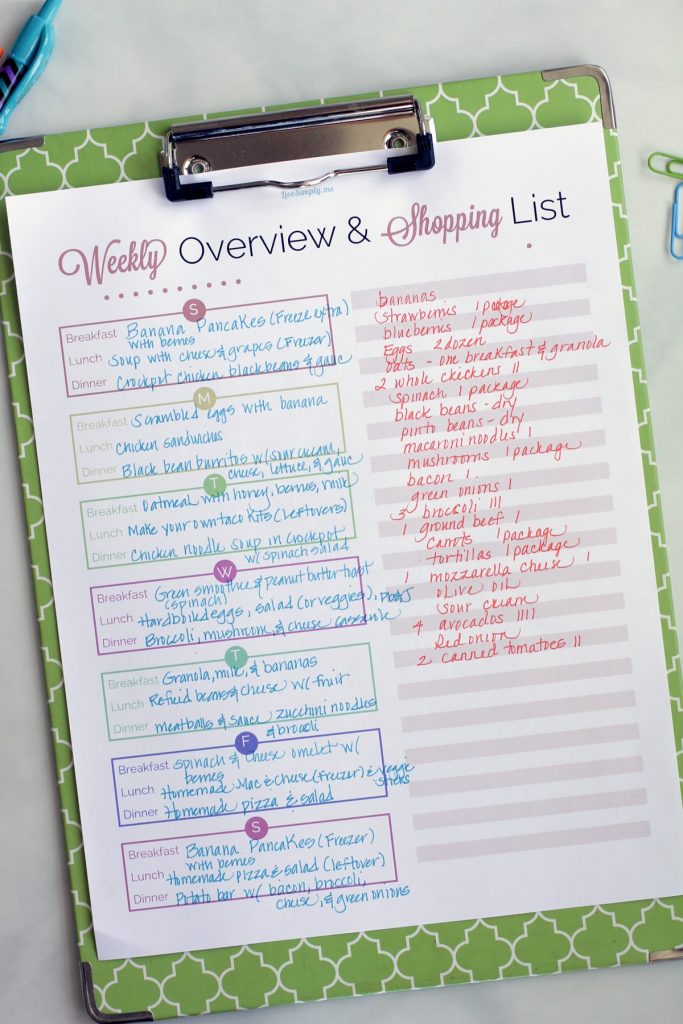 LiveSimply.me
Weekly Overview & Shopping List
S
Breakfast Banana Pancakes (Freeze extra)
with berries
Lunch Soup with cheese & grapes (Freezer)
Dinner Crockpot chicken, black beans & guac
M
Breakfast Scrambled eggs with banana
Lunch Chicken sandwiches
Dinner Black bean burritos w/ sour cream,
cheese, lettuce, & guac
T
Breakfast Oatmeal with honey, berries, milk
Lunch Make your own taco kits (leftovers)
Dinner Chicken noodle soup in crockpot
w/ spinach salad
W
Breakfast Green smoothie & peanut butter toast
(spinach)
Lunch Hardboil eggs, salad (or veggies), PB&J
Dinner Broccoli, mushroom, & cheese casserole
T
Breakfast Granola, milk, & bananas
Lunch Refried beans & cheese w/ fruit
Dinner meatballs & sauce zucchini noodles
& broccoli
F
Breakfast Spinach & cheese omelet w/
berries
Lunch Homemade Mac & cheese (freezer) & veggie
sticks
Dinner Homemade pizza & salad
S
Breakfast Banana Pancakes (Freezer)
with berries
Lunch Homemade pizza & salad (leftover)
Dinner Potato bar w/ bacon, broccoli,
cheese, & green onions
bananas
strawberries 1 package
blueberries 1 package
Eggs 2 dozen
oats - one breakfast & granola
2 whole chickens II
spinach 1 package
black beans - dry
pinto beans - dry
macaroni noodles 1
mushrooms 1 package
bacon 1
green onions 1
3 broccoli III
1 ground beef 1
carrots 1 package
tortillas 1 package
1 mozzarella cheese 1
olive oil
sour cream
4 avocados IIII
Red onion
2 canned tomatoes II